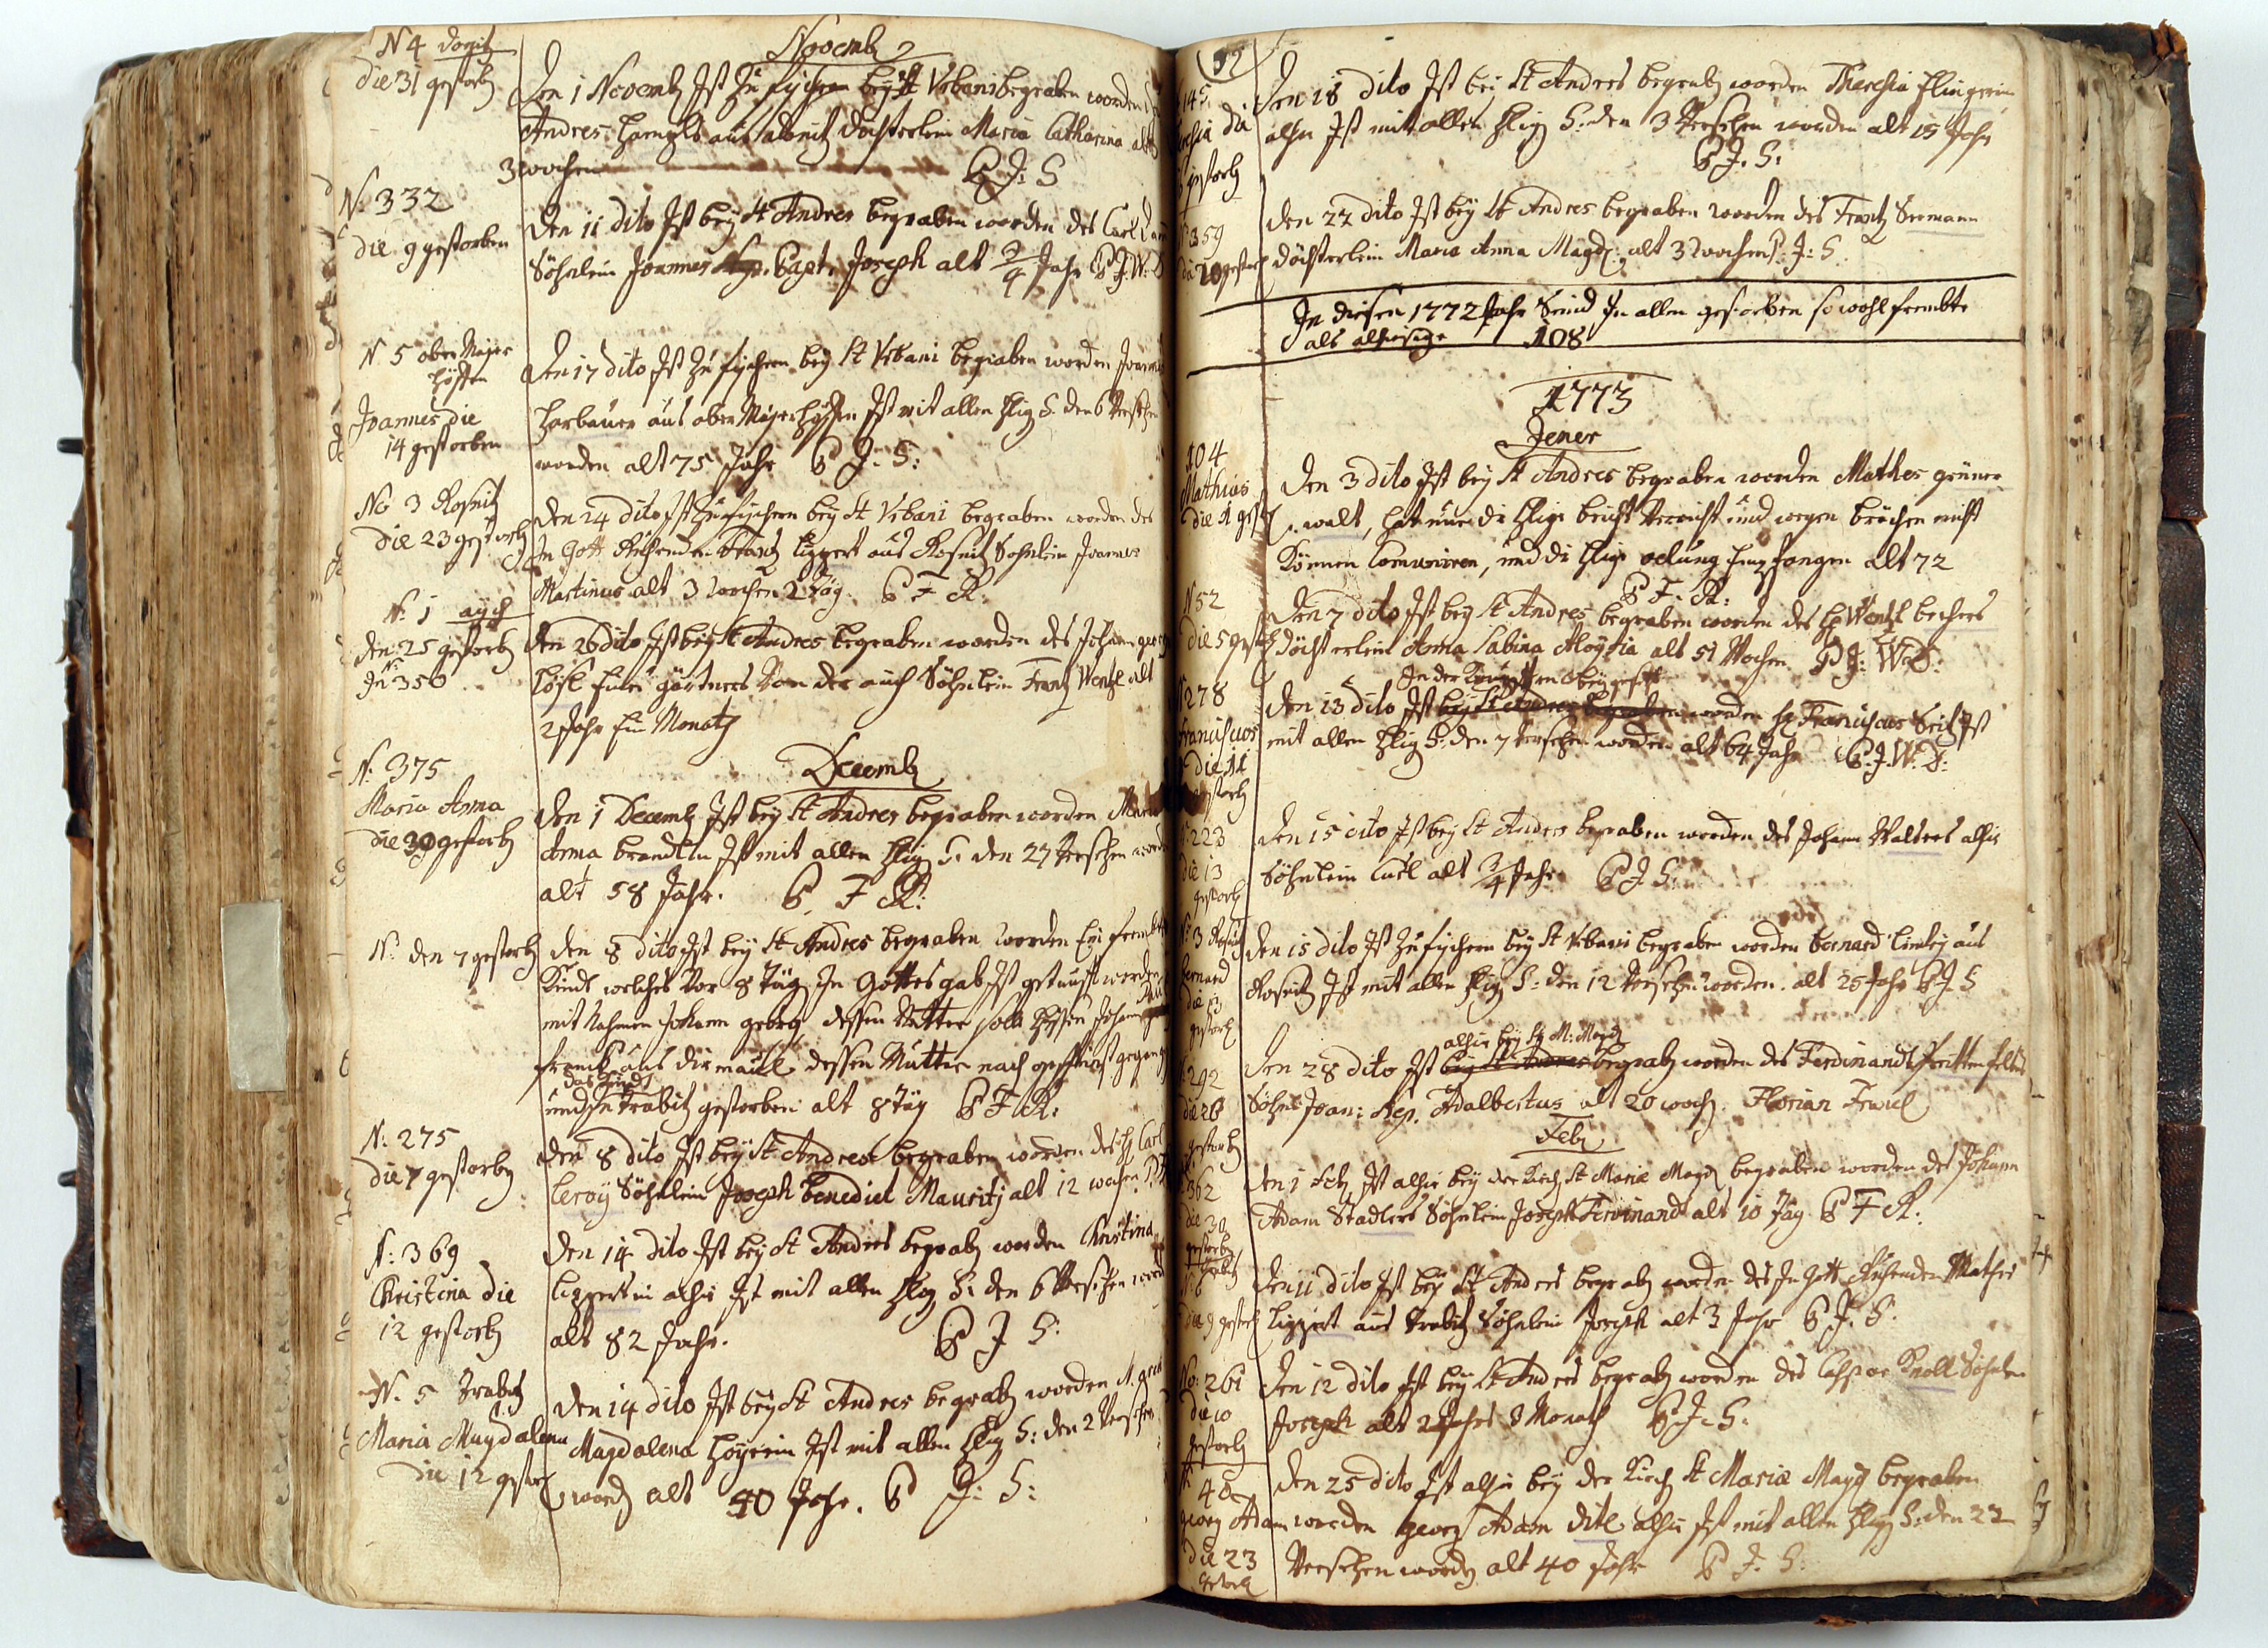 N 4 donitz
die 31 gestorb
Novemb
Den 1 Novemb Ist Zu fischern beÿ St Urbani begraben worden
Andres aus donitz Döchterlein Maria Catharina alt
3 wochen P J: S
N: 332
die 9 gestorben
Den 11 dito Ist beÿ St Andres begraben worden des Carl
Söhnlein Joannes Nep. Bapt. Joseph alt 3/4 Jahr P J. W. S
N 5 ober Maÿer
höffen
Joannes die
14 gestorben
Den 17 dito Ist Zu fischern beÿ St Urbani begraben worden Joannes
Harbauer aus ober Maÿerhöffen Ist mit allen hlig S. den 6 Versehen
worden alt 75 Jahr P J. S:
No 3 Rosnitz
die 23 gestorb
Den 24 dito Ist Zu fischern beÿ St Urbani begraben worden des
In Gott Ruhenden Frantz Lippert aus Rosnitz Sohnlein Joannes
Martinus alt 3 wochen 2 täg. P F R:
N: 1 aych
den 25 gestorb
In N: 350
Den 26 dito Ist beÿ St Andres begraben worden des Johann georg
Lösl gärtners Von der aich Söhnlein Frantz Wentzl alt
2 Jahr ein Monath
Decemb
N: 375
Maria Anna
die 30 gestorb
Den 1 Decemb Ist beÿ St Andres begraben worden Maria
Anna brandtin Ist mit allen hlig S. den 27 Versehen worden
alt 58 Jahr. P. F R:
N: den 7 gestorb
den 8 dito Ist beÿ St Andres begraben worden Ein frembtes
Kindt welches Vor 8 Täg In Gottes gab Ist getaufft worden
mit Nahmen Johann georg dessen Vatter soll heissen Johann
franck aus dessen Mutter nach gegangen
das Kindt
und In Trabitz gestorben alt 8 täg P F R:
N: 275
die 7 gestorben
Den 8 dito Ist beÿ St Andres begraben worden des H Carl
Leroÿ Söhnlein Joseph Benedict Mauritÿ alt 12 wochen P. J.
N: 369
Christina die
12 gestorb
Den 14 dito Ist beÿ St Andres begrab worden Christina
Lippertin alhir Ist mit allen hlig S: den 6 Versehen word
alt 82 Jahr. P J S:
N. 5 Trabitz
Maria Magdalena
die 12 gestorb
Den 14 dito Ist beÿ St Andres begrab worden
Magdalena Hoÿerin Ist mit allen hlig S: den 2 Versehen
word alt 40 Jahr. P J: S:
92
145
die
gestorb
Den 18 dito Ist beÿ St Andres begrab worden Theresia Klingerin
alhir Ist mit allen hlig S: den 3 Versehen worden alt 15 Jahr
P J. S:
N 359
die 20 gestorb
Den 22 dito Ist beÿ St Andres begraben worden des Frantz Seemann
Döchterlein Maria Anna Magd: alt 3 wochen P: J: S.
In diesen 1772 Jahr Seind In allen gestorben sowohl frembte
als alhiesige 108
1773
Jener
104
Mathias
die 1 gest
Den 3 dito Ist beÿ St Andres begraben worden Mathes grüner
walt, hat nur die hlige beicht Verricht und wegen brechen nicht
Können Comuniciren, und die hlige oelung Empfangen alt 72
P F. R:
N 52
die 5 gestorb
Den 7 dito Ist beÿ St Andres begraben worden des H Wentzl bechers
Döchterlein Anna Sabina Aloÿsia alt 51 Wochen P J: W: S:
278
Franciscus
die 11
gestorb
In der Krufften beÿgesetzt
Den 13 dito Ist beÿ St Andres begraben worden H Franciscus Seitz Ist
mit allen hlig S: den 7 Versehen worden alt 64 Jahr P. J. W. S:
223
die 13
gestorb
Den 15 dito Ist beÿ St Andres begraben worden des Johann Walters alhir
Söhnlein Carl alt 3/4 Jahr P J S:
N 3 Rosnitz
Bernard
die 13
gestorb
Den 15 dito Ist Zu fischern beÿ St Urbani begraben worden Bernard Limleÿ aus
Rosnitz Ist mit allen hlig S: den 12 Versehen worden. alt 25 Jahr P J S
292
die 26
gestorb
alhir beÿ St M: Magd
Den 28 dito Ist beÿ St Andres begrab worden des Ferdinandt Prettenfelters
Söhnl Joan: Nep. Adalbertus alt 20 woch. Florian
Feb
362
die 30
gestorben
Den 1 Feb Ist alhir beÿ der Kirch St Maria Magd begraben worden des Johann
Adam Stadlers Söhnlein Joseph Ferdinandt alt 10 Täg P F R:
Trabitz
N 6
die 9 gestorb
Den 11 dito Ist beÿ St Andres begrab worden des In Gott Ruhenden Mathes
Lippert aus Trabitz Söhnlein Joseph alt 3 Jahr P J. S.
No: 261
die 10
gestorb
Den 12 dito Ist beÿ St Andres begrab worden des Caspar Knoll Söhnlein
Joseph alt 2 Jahr 8 Monath P J. S:
N 48
georg Adam
die 23
gestorb
Den 25 dito Ist alhir beÿ der Kirch St Maria Magd begraben
worden georg Adam ditl alhir Ist mit allen hlig S: den 22
Versehen word alt 40 Jahr P J. S: